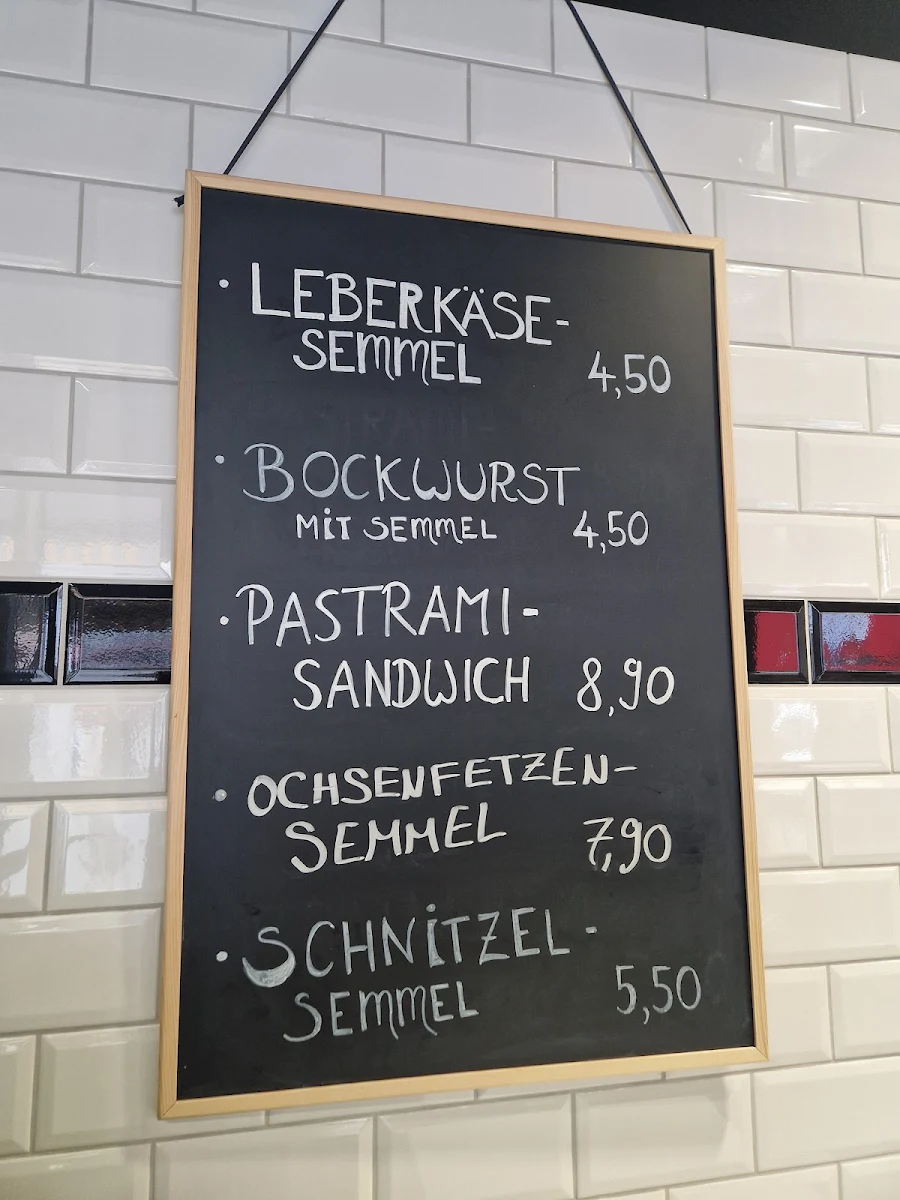 • LEBERKÄSE-
SEMMEL 4,50
• BOCKWURST
MIT SEMMEL 4,50
• PASTRAMI-
SANDWICH 8,90
• OCHSENFETZEN-
SEMMEL 7,90
• SCHNITZEL-
SEMMEL 5,50